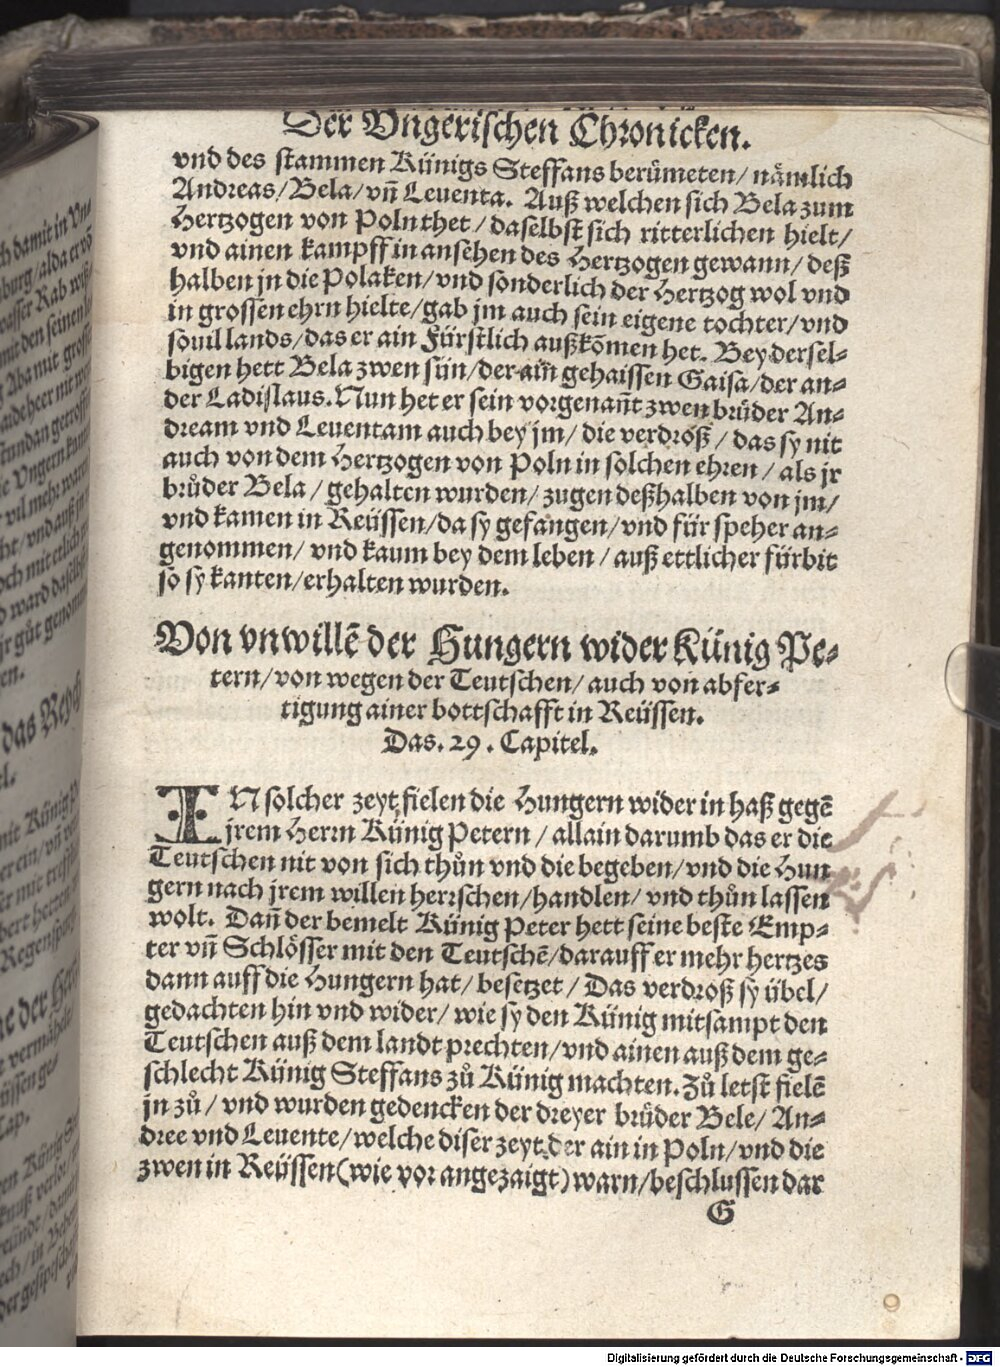 Der Vngerischen Chronicken.
vnd des stammen Künigs Steffans berümeten/ nämlich
Andreas/ Bela/ vñ Leuenta. Auß welchen sich Bela zum
Hertzogen von Poln thet/ daselbst sich ritterlichen hielt/
vnd ainen kampff in ansehen des Hertzogen gewann/ deß
halben jn die Polaken/ vnd sonderlich der Hertzog wol vnd
in grossen ehrn hielte/ gab jm auch sein eigene tochter/ vnd
souil lands/ das er ain Fürstlich außkõmen het. Bey dersel-
bigen hett Bela zwen sün/ der ain gehaissen Gaisa/ der an-
der Ladislaus. Nun het er sein vorgenañt zwen brüder An-
dream vnd Leuentam auch bey jm/ die verdroß/ das sy nit
auch von dem Hertzogen von Poln in solchen ehren/ als jr
brůder Bela/ gehalten wurden/ zugen deßhalben von jm/
vnd kamen in Reüssen/ da sy gefangen/ vnd für speher an-
genommen/ vnd kaum bey dem leben/ auß ettlicher fürbit
so sy kanten/ erhalten wurden.
Von vnwillẽ der Hungern wider Künig Pe-
tern/ von wegen der Teutschen/ auch von abfer-
tigung ainer bottschafft in Reüssen.
Das. 29. Capitel.
IN solcher zeyt fielen die Hungern wider in haß gegẽ
jrem Herrn Künig Petern/ allain darumb das er die
Teutschen nit von sich thůn vnd die begeben/ vnd die Hun
gern nach jrem willen herrschen/ handlen/ vnd thůn lassen
wolt. Dañ der bemelt Künig Peter hett seine beste Emp-
ter vñ Schlösser mit den Teutschẽ/ darauff er mehr hertzes
dann auff die Hungern hat/ besetzet/ Das verdroß sy übel/
gedachten hin vnd wider/ wie sy den Künig mitsampt den
Teutschen auß dem landt prechten/ vnd ainen auß dem ge-
schlecht Künig Steffans zů Künig machten. Zů letst fielẽ
jn zů/ vnd wurden gedencken der dreyer brüder Bele/ An-
dree vnd Leuente/ welche diser zeyt der ain in Poln/ vnd die
zwen in Reüssen (wie vor angezaigt) warn/ beschlussen dar
G
Digitalisierung gefördert durch die Deutsche Forschungsgemeinschaft - DFG